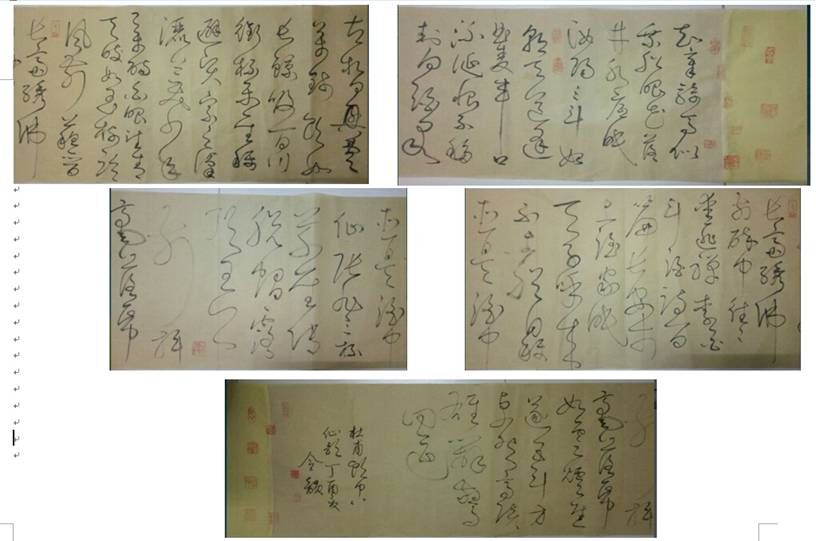 知章騎馬似
乘船眼花落
井水底眠
汝陽三斗始
朝天道逢
麴車口
流涎恨不移
封向酒泉
左相日興費
萬錢飲如
長鯨吸百川
銜杯樂聖稱
避賢宗之瀟
灑美少年
舉觴白眼望青
天皎如玉樹臨
風前蘇晉
長齋繡佛
長齋繡佛
前醉中往往
愛逃禪李白
斗酒詩百
篇長安市
上酒家眠
天子呼來
不上船自稱
臣是酒中
臣是酒中
仙張旭三杯
草聖傳
脫帽露
頂王公
前揮
毫落紙
前揮
毫落紙
如雲煙焦
遂五斗方
卓然高談
雄辯驚
四筵
杜甫飲中八
仙歌丁酉